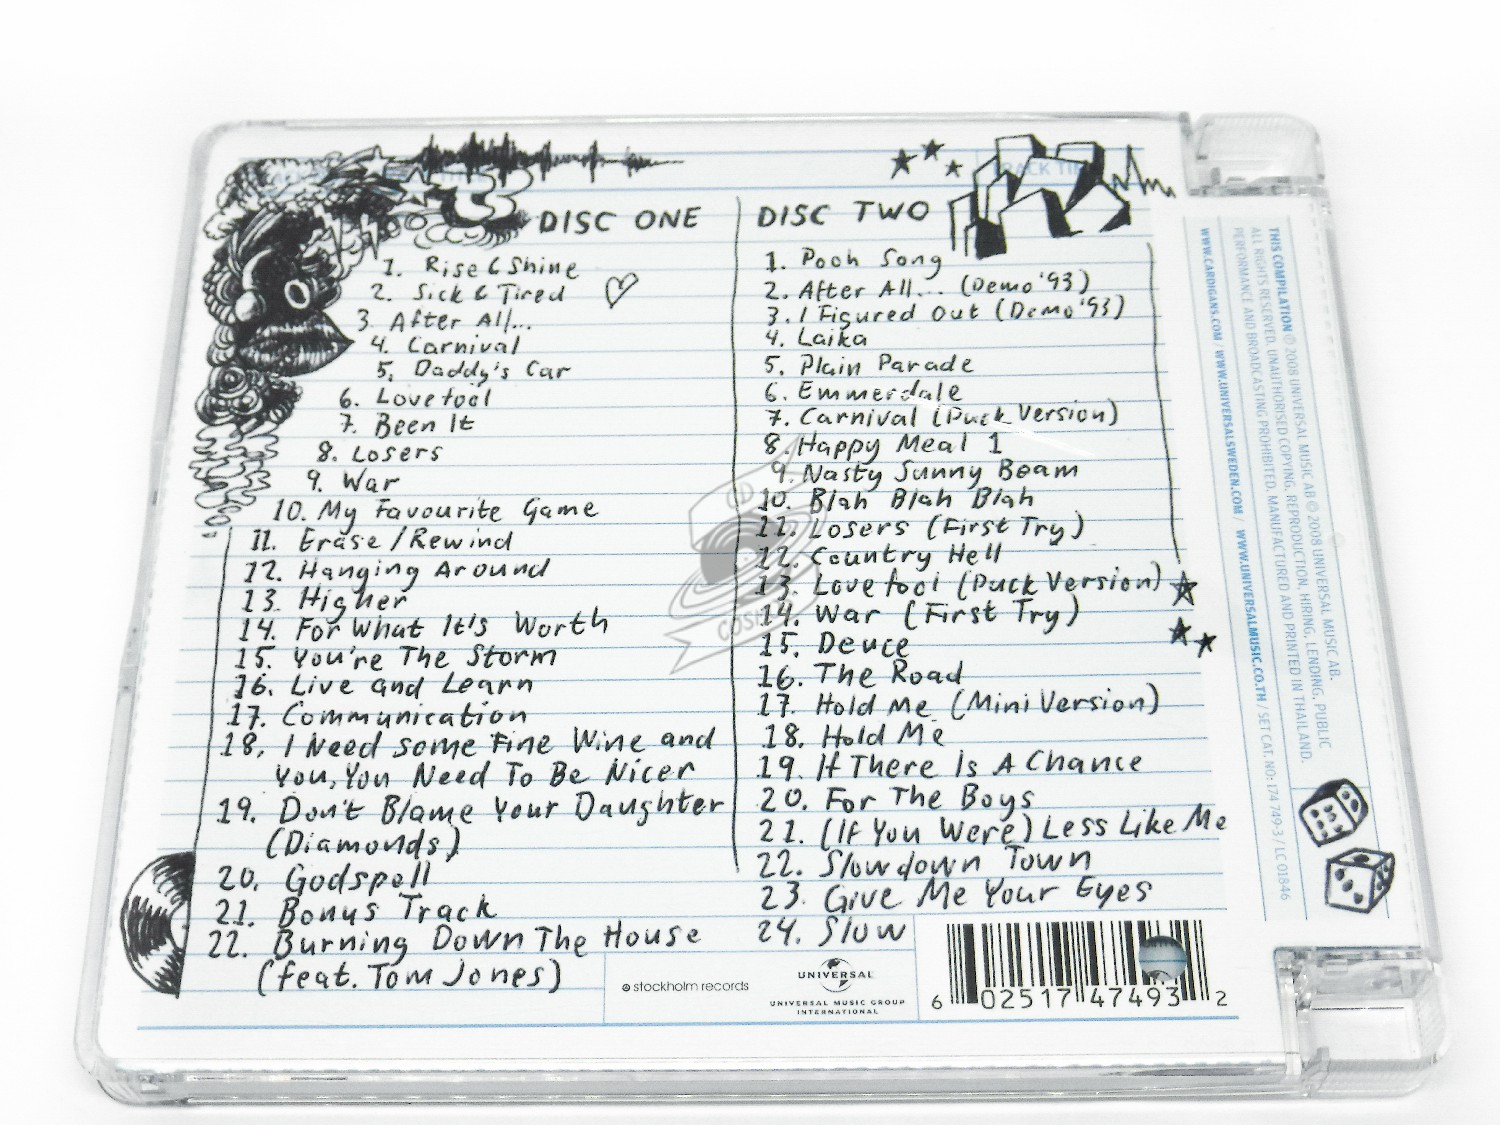 DISC ONE
1. Rise & Shine
2. Sick & Tired
3. After All...
4. Carnival
5. Daddy's Car
6. Lovefool
7. Been It
8. Losers
9. War
10. My Favourite Game
11. Erase/Rewind
12. Hanging Around
13. Higher
14. For What It's Worth
15. You're The Storm
16. Live and Learn
17. Communication
18. I Need some Fine Wine and
You, You Need To Be Nicer
19. Don't Blame Your Daughter
(Diamonds)
20. Godspell
21. Bonus Track
22. Burning Down The House
(feat. Tom Jones)
DISC TWO
1. Pooh Song
2. After All... (Demo '93)
3. I Figured Out (Demo '93)
4. Laika
5. Plain Parade
6. Emmerdale
7. Carnival (Puck Version)
8. Happy Meal 1
9. Nasty Sunny Beam
10. Blah Blah Blah
11. Losers (First Try)
12. Country Hell
13. Lovefool (Puck Version)
14. War (First Try)
15. Deuce
16. The Road
17. Hold Me (Mini Version)
18. Hold Me
19. If There Is A Chance
20. For The Boys
21. (If You Were) Less Like Me
22. Slowdown Town
23. Give Me Your Eyes
24. Slow
stockholm records
UNIVERSAL
UNIVERSAL MUSIC GROUP
INTERNATIONAL
6 02517 47493 2
THIS COMPILATION ℗ 2008 UNIVERSAL MUSIC AB © 2008 UNIVERSAL MUSIC AB.
ALL RIGHTS RESERVED. UNAUTHORISED COPYING, REPRODUCTION, HIRING, LENDING, PUBLIC
PERFORMANCE AND BROADCASTING PROHIBITED. MANUFACTURED AND PRINTED IN THAILAND.
WWW.CARDIGANS.COM / WWW.UNIVERSALSWEDEN.COM / WWW.UNIVERSALMUSIC.CO.TH / SET CAT. NO: 174 749-3 / LC 01846
CD